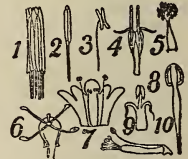 1 2 3 4 5
6 7 9 8 10